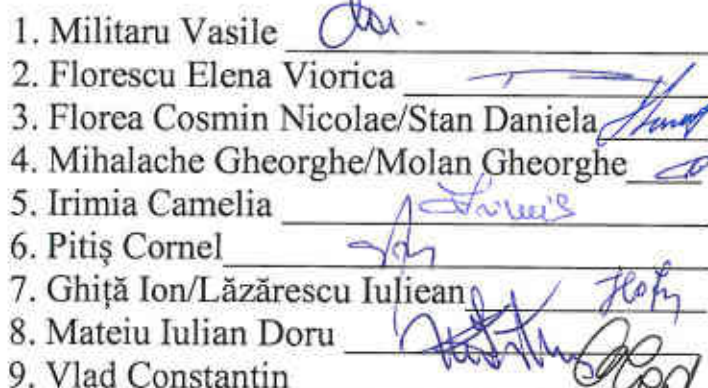 1. Militaru Vasile
2. Florescu Elena Viorica
3. Florea Cosmin Nicolae/Stan Daniela
4. Mihalache Gheorghe/Molan Gheorghe
5. Irimia Camelia
6. Pitiș Cornel
7. Ghiță Ion/Lăzărescu Iuliean
8. Mateiu Iulian Doru
9. Vlad Constantin